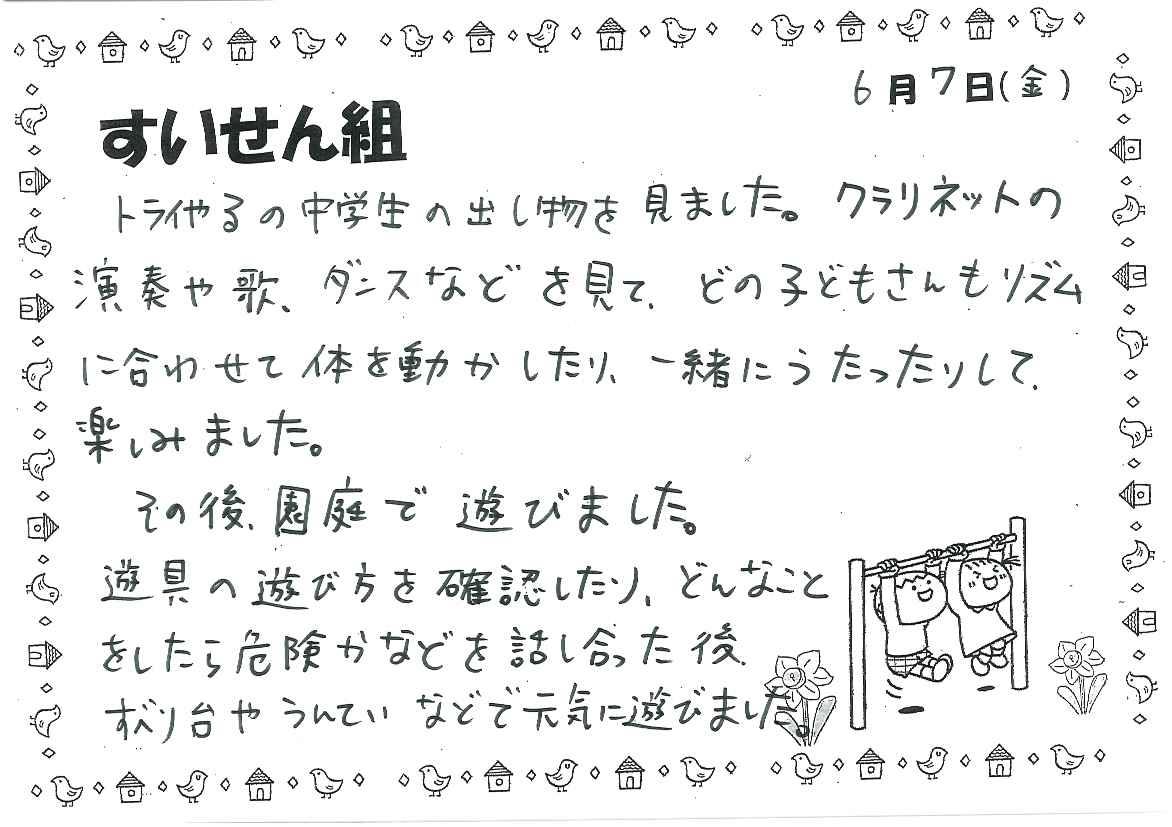 6月7日(金)
すいせん組
トライやるの中学生の出し物を見ました。クラリネットの
演奏や歌、ダンスなどを見て、どの子どもさんもリズム
に合わせて体を動かしたり、一緒にうたったりして、
楽しみました。
その後、園庭で遊びました。
遊具の遊び方を確認したり、どんなこと
をしたら危険かなどを話し合った後、
すべり台やうんていなどで元気に遊びました。